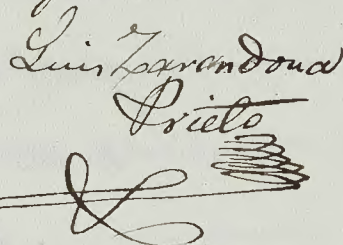 Luis Zarandona
Prieto